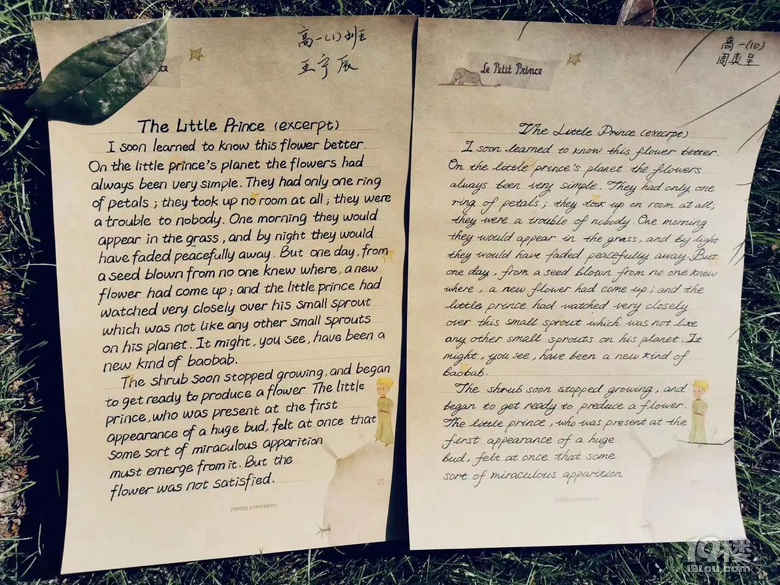 高一(1)班
王宇辰
The Little Prince (excerpt)
I soon learned to know this flower better.
On the little prince's planet the flowers had
always been very simple. They had only one ring
of petals; they took up no room at all; they were
a trouble to nobody. One morning they would
appear in the grass, and by night they would
have faded peacefully away. But one day, from
a seed blown from no one knew where, a new
flower had come up; and the little prince had
watched very closely over his small sprout
which was not like any other small sprouts
on his planet. It might, you see, have been a
new kind of baobab.
The shrub soon stopped growing, and began
to get ready to produce a flower. The little
prince, who was present at the first
appearance of a huge bud, felt at once that
some sort of miraculous apparition
must emerge from it. But the
flower was not satisfied.
Le Petit Prince
高一(10)
The Little Prince (excerpt)
I soon learned to know this flower better.
On the little prince's planet the flowers
always been very simple. They had only one
ring of petals; they took up on room at all;
they were a trouble of nobody. One morning
they would appear in the grass, and by light
they would have faded peacefully away. But
one day, from a seed blown from no one knew
where, a new flower had come up; and the
little prince had watched very closely
over this small sprout which was not like
any other small sprouts on his planet. It
might, you see, have been a new kind of
baobab.
The shrub soon stopped growing, and
began to get ready to preduce a flower.
The little prince, who was present at the
first appearance of a huge
bud, felt at once that some
sort of miraculous apparition
19楼
19lou.com